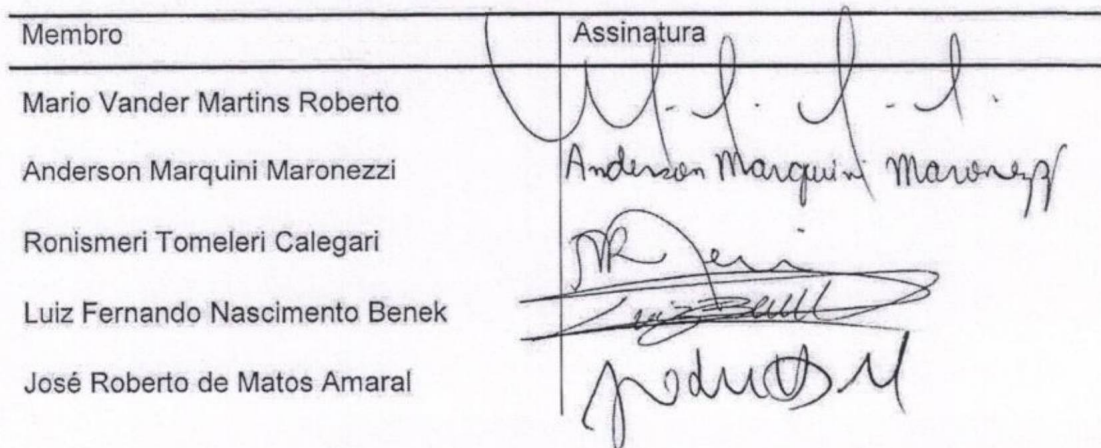 Membro Assinatura
Mario Vander Martins Roberto
Anderson Marquini Maronezzi Anderson Marquini Maronezzi
Ronismeri Tomeleri Calegari
Luiz Fernando Nascimento Benek
José Roberto de Matos Amaral